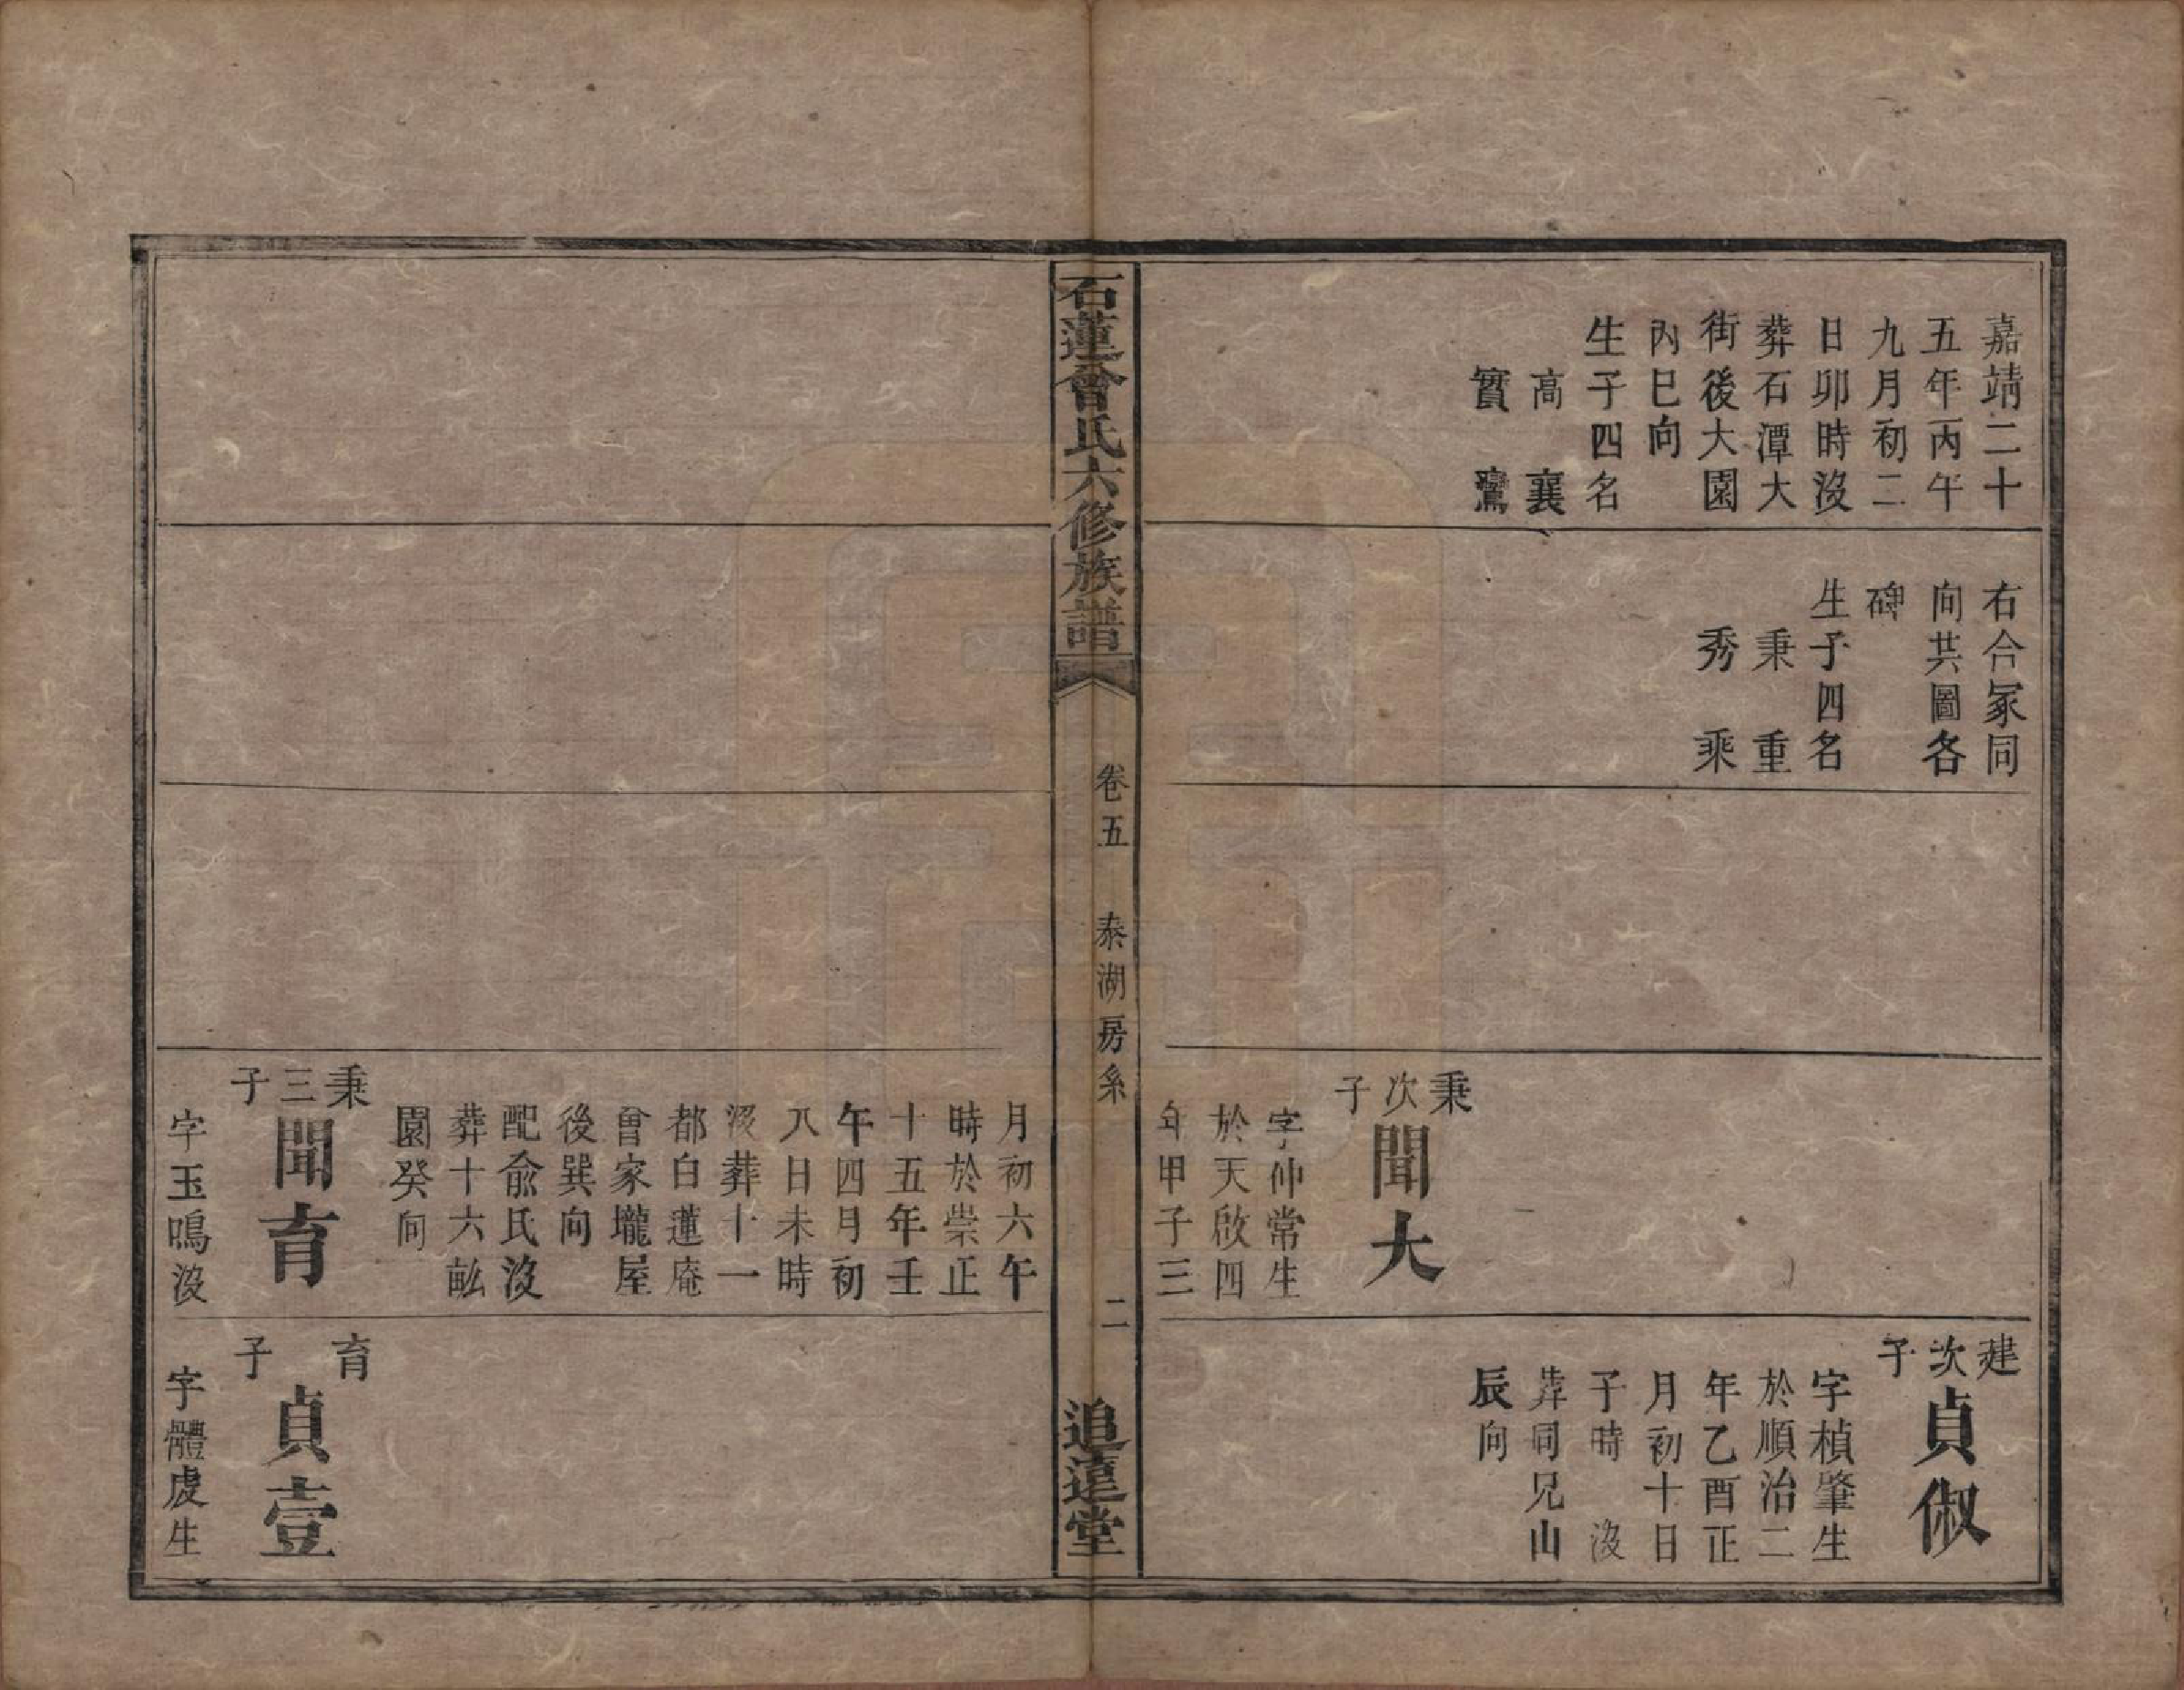 嘉靖二十
五年丙午
九月初二
日卯時沒
葬石潭大
街後大園
內巳向
生子四名
高 襄
實 鸞
右合冢同
向共圖各
碑
生子四名
秉 重
秀 乘
秉次子
聞大
字仲常生
於天啟四
年甲子三
建次子
貞俶
字楨肇生
於順治二
年乙酉正
月初十日
子時 沒
葬同兄山
辰向
石蓮曾氏六修族譜
卷五 泰湖房系 二
追遠堂
月初六午
時於崇正
十五年壬
午四月初
八日未時
沒葬十一
都白蓮庵
曾家壠屋
後巽向
配俞氏沒
葬十六畝
園癸向
秉三子
聞育
字玉鳴沒
育子
貞壹
字體虔生